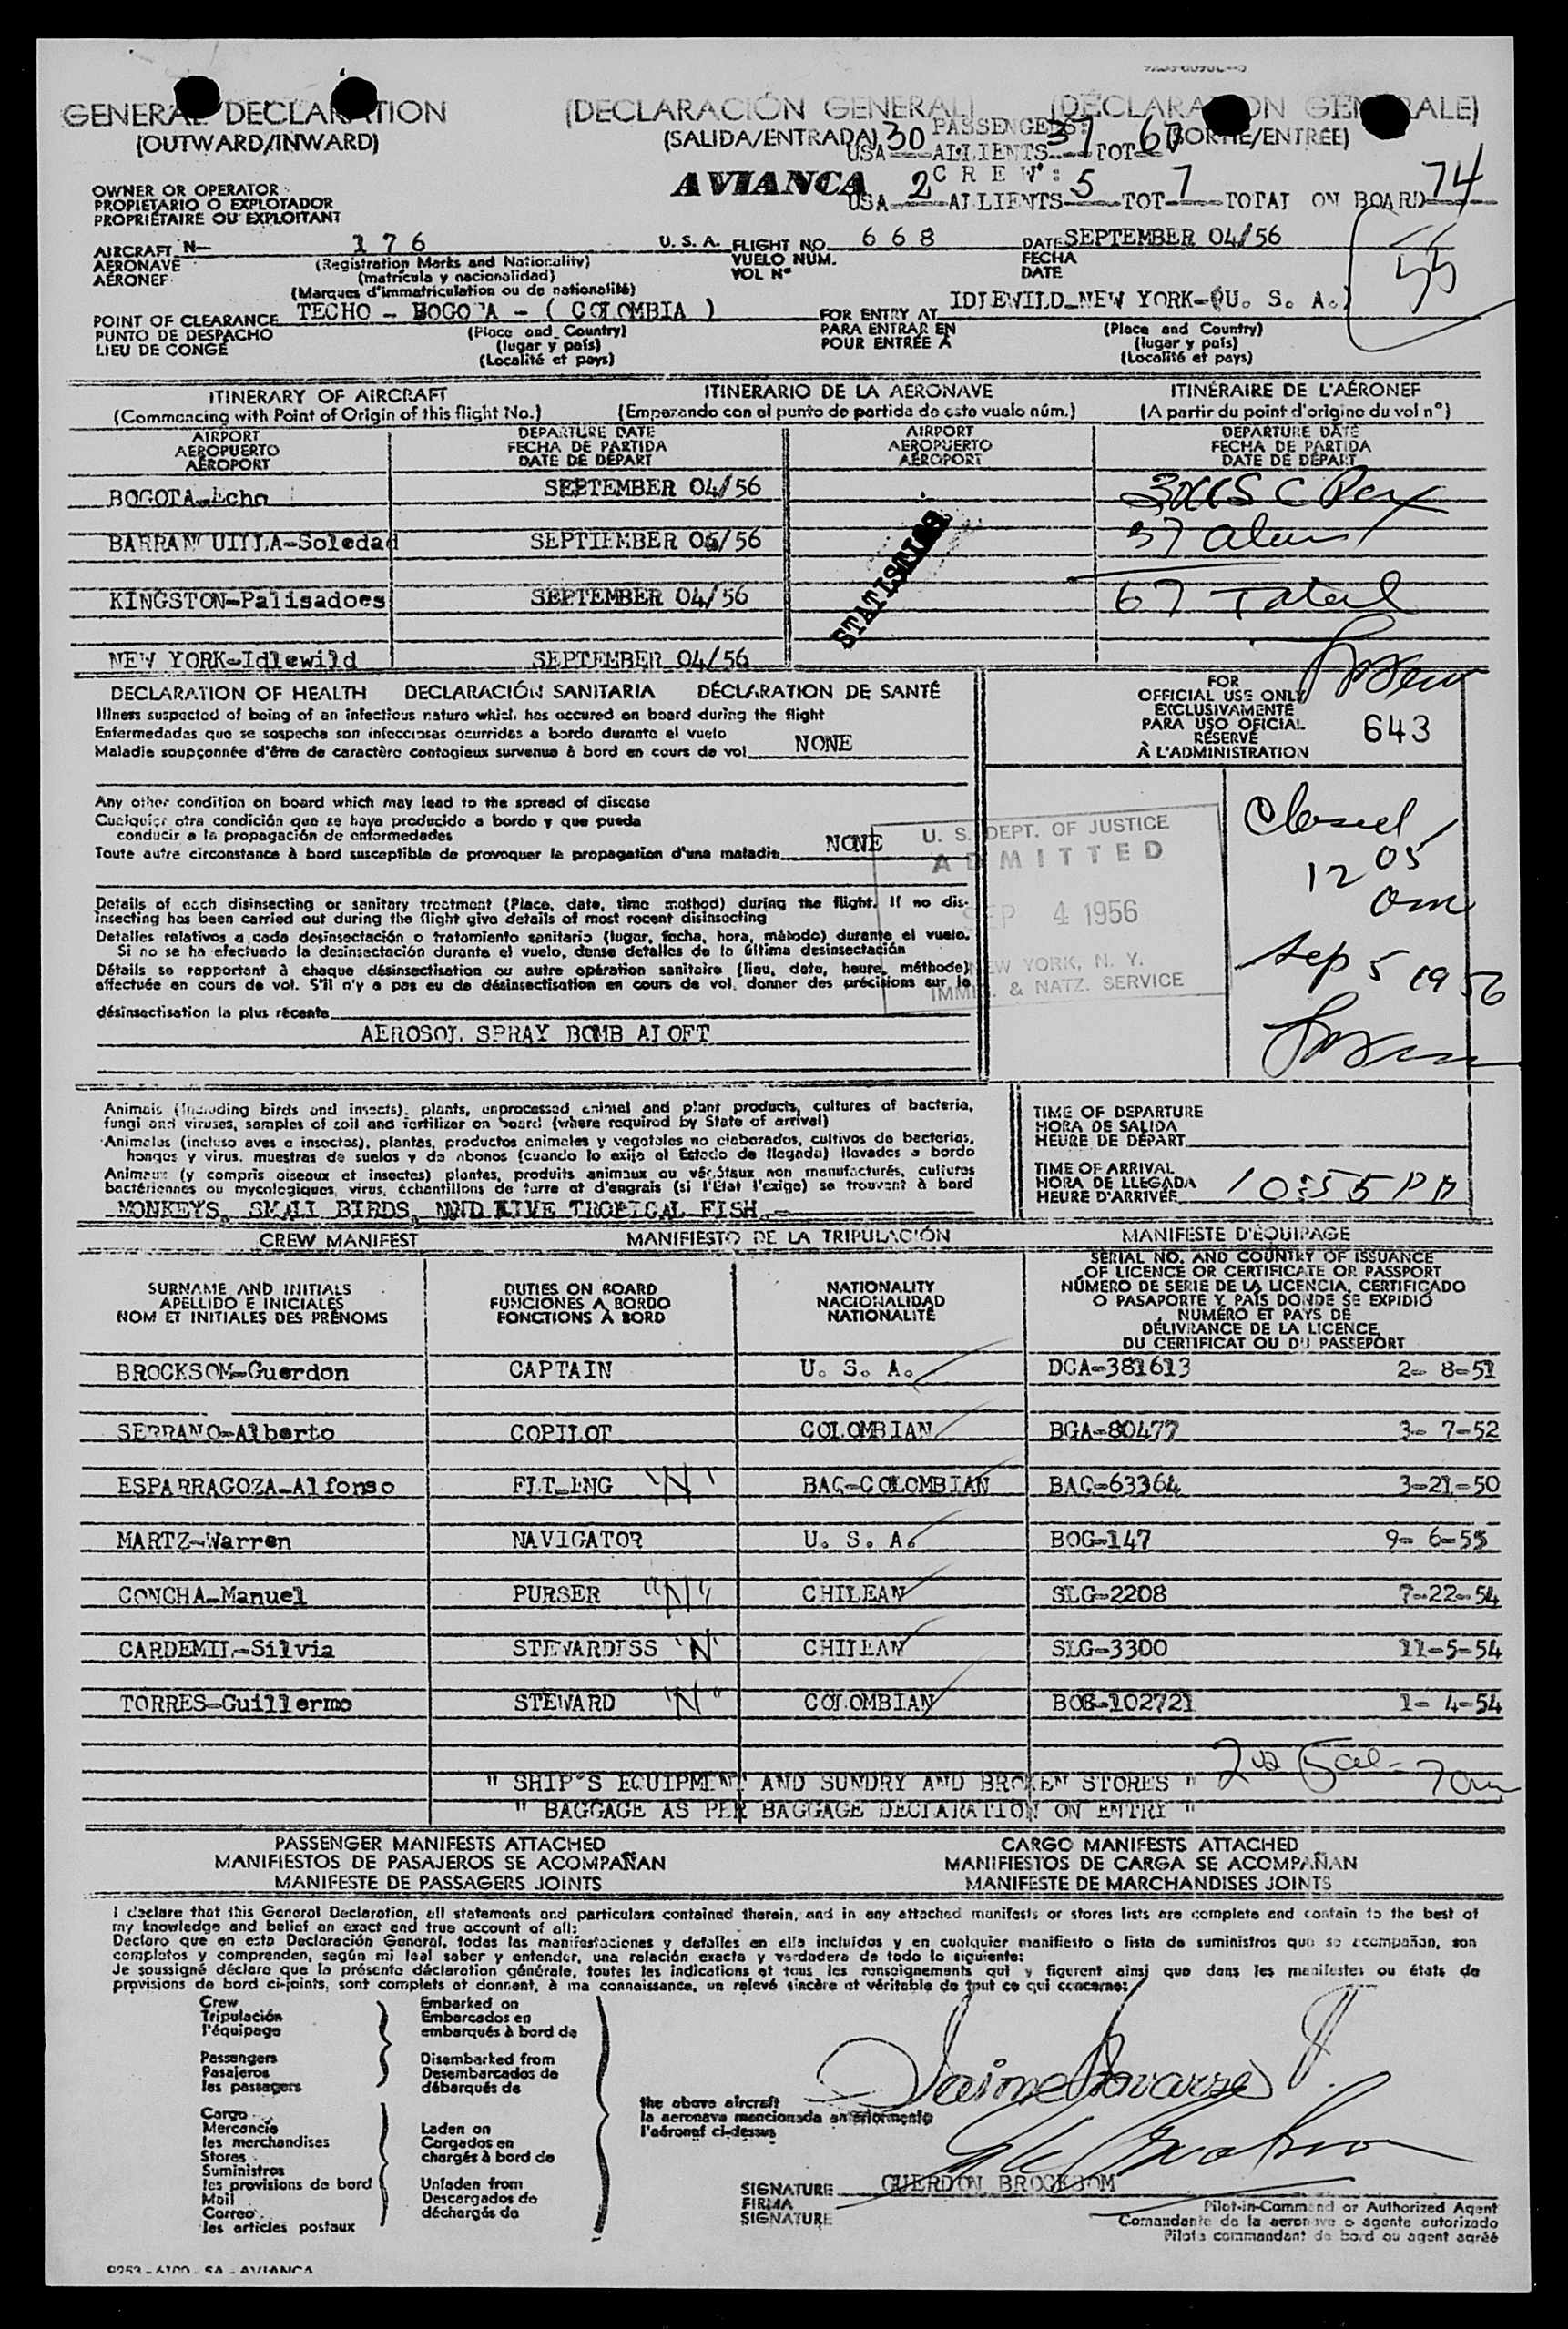 GENERAL DECLARATION (DECLARACIÓN GENERAL) (DÉCLARATION GENERALE)
(OUTWARD/INWARD) (SALIDA/ENTRADA) (SORTIE/ENTRÉE)
PASSENGERS:
USA 30 ALLIENTS 37 TOT 67
OWNER OR OPERATOR
PROPIETARIO O EXPLOTADOR
PROPRIÉTAIRE OU EXPLOITANT
AVIANCA
C R E W :
USA 2 ALLIENTS 5 TOT 7 TOTAL ON BOARD 74
AIRCRAFT N— 176 U. S. A. FLIGHT NO. 668 DATE SEPTEMBER 04/56
AERONAVE (Registration Marks and Nationality) VUELO NUM. FECHA
AÉRONEF (matrícula y nacionalidad) VOL Nº DATE
(Marques d'immatriculation ou de nationalité)
POINT OF CLEARANCE TECHO - BOGOTA - ( COLOMBIA ) FOR ENTRY AT IDLEWILD-NEW YORK-(U. S. A.)
PUNTO DE DESPACHO (Place and Country) PARA ENTRAR EN (Place and Country)
LIEU DE CONGÉ (lugar y país) POUR ENTRÉE A (lugar y país)
(Localité et pays) (Localité et pays)
ITINERARY OF AIRCRAFT ITINERARIO DE LA AERONAVE ITINÉRAIRE DE L'AÉRONEF
(Commencing with Point of Origin of this flight No.) (Empezando con el punto de partida de este vuelo núm.) (A partir du point d'origine du vol nº)
AIRPORT DEPARTURE DATE AIRPORT DEPARTURE DATE
AEROPUERTO FECHA DE PARTIDA AEROPUERTO FECHA DE PARTIDA
AÉROPORT DATE DE DÉPART AÉROPORT DATE DE DÉPART
BOGOTA SEPTEMBER 04/56
BARRANQUILLA-Soledad SEPTIEMBER 04/56
37
KINGSTON-Palisadoes SEPTEMBER 04/56
67 Total
STATISTICS
NEW YORK-Idlewild SEPTEMBER 04/56
DECLARATION OF HEALTH DECLARACIÓN SANITARIA DÉCLARATION DE SANTÉ
Illness suspected of being of an infectious nature which has occured on board during the flight
Enfermedades que se sospecha son infecciosas ocurridas a bordo durante el vuelo
Maladie soupçonnée d'être de caractère contagieux survenue à bord en cours de vol NONE
FOR
OFFICIAL USE ONLY
EXCLUSIVAMENTE
PARA USO OFICIAL
RÉSERVÉ
À L'ADMINISTRATION
643
Any other condition on board which may lead to the spread of disease
Cualquier otra condición que se haya producido a bordo y que pueda
conducir a la propagación de enfermedades
Toute autre circonstance à bord susceptible de provoquer la propagation d'une maladie NONE
U. S. DEPT. OF JUSTICE
ADMITTED
SEP 4 1956
NEW YORK, N. Y.
IMMI. & NATZ. SERVICE
Closed
12 05
am
Sep 5 1956
Details of each disinsecting or sanitary treatment (Place, date, time method) during the flight. If no dis-
insecting has been carried out during the flight give details of most recent disinsecting
Detalles relativos a cada desinsectación o tratamiento sanitario (lugar, fecha, hora, método) durante el vuelo.
Si no se ha efectuado la desinsectación durante el vuelo, dense detalles de la última desinsectación
Détails se rapportant à chaque désinsectisation ou autre opération sanitaire (lieu, date, heure, méthode)
effectuée en cours de vol. S'il n'y a pas eu de désinsectisation en cours de vol. donner des précisions sur la
désinsectisation la plus récente
AEROSOL SPRAY BOMB ALOFT
Animals (Including birds and insects), plants, unprocessed animal and plant products, cultures of bacteria,
fungi and viruses, samples of soil and fertilizer on board (where required by State of arrival)
Animales (incluso aves e insectos), plantas, productos animales y vegetales no elaborados, cultivos de bacterias,
hongos y virus. muestras de suelos y de abonos (cuando lo exija el Estado de llegada) llevados a bordo
Animaux (y compris oiseaux et insectes) plantes, produits animaux ou végétaux non manufacturés, cultures
bactériennes ou mycologiques, virus, échantillons de terre et d'engrais (si l'Etat l'exige) se trouvant à bord
MONKEYS, SMALL BIRDS, AND LIVE TROPICAL FISH.-
TIME OF DEPARTURE
HORA DE SALIDA
HEURE DE DÉPART
TIME OF ARRIVAL
HORA DE LLEGADA
HEURE D'ARRIVÉE 10:55 PM
CREW MANIFEST MANIFIESTO DE LA TRIPULACIÓN MANIFESTE D'ÉQUIPAGE
SURNAME AND INITIALS
APELLIDO E INICIALES
NOM ET INITIALES DES PRÉNOMS
DUTIES ON BOARD
FUNCIONES A BORDO
FONCTIONS À BORD
NATIONALITY
NACIONALIDAD
NATIONALITÉ
SERIAL NO. AND COUNTRY OF ISSUANCE
OF LICENCE OR CERTIFICATE OR PASSPORT
NÚMERO DE SERIE DE LA LICENCIA, CERTIFICADO
O PASAPORTE Y PAÍS DONDE SE EXPIDIÓ
NUMÉRO ET PAYS DE
DÉLIVRANCE DE LA LICENCE
DU CERTIFICAT OU DU PASSEPORT
BROCKSOM-Guerdon CAPTAIN U. S. A. DCA-381613 2- 8-51
SERRANO-Alberto COPILOT COLOMBIAN BGA-80477 3- 7-52
ESPARRAGOZA-Alfonso FLT-ENG "N" BAC-COLOMBIAN BAC-63364 3-21-50
MARTZ-Warren NAVIGATOR U. S. A. BOG-147 9- 6-55
CONCHA-Manuel PURSER "N" CHILEAN SLG-2208 7-22-54
CARDEMIL-Silvia STEWARDESS "N" CHILEAN SLG-3300 11-5-54
TORRES-Guillermo STEWARD "N" COLOMBIAN BOG-102721 1- 4-54
" SHIP'S EQUIPMENT AND SUNDRY AND BROKEN STORES "
" BAGGAGE AS PER BAGGAGE DECLARATION ON ENTRY "
PASSENGER MANIFESTS ATTACHED CARGO MANIFESTS ATTACHED
MANIFIESTOS DE PASAJEROS SE ACOMPAÑAN MANIFIESTOS DE CARGA SE ACOMPAÑAN
MANIFESTE DE PASSAGERS JOINTS MANIFESTE DE MARCHANDISES JOINTS
I declare that this General Declaration, all statements and particulars contained therein, and in any attached manifests or stores lists are complete and contain to the best of
my knowledge and belief an exact and true account of all:
Declaro que en esta Declaración General, todas las manifestaciones y detalles en ella incluídos y en cualquier manifiesto o lista de suministros que se acompañan, son
completos y comprenden, según mi leal saber y entender, una relación exacta y verdadera de todo lo siguiente:
Je soussigné déclare que la présente déclaration générale, toutes les indications et tous les renseignements qui y figurent ainsi que dans les manifestes ou états de
provisions de bord ci-joints, sont complets et donnent, à ma connaissance, un relevé sincère et véritable de tout ce qui concerne:
Crew Embarked on
Tripulación Embarcados en
l'équipage embarqués à bord de
Passengers Disembarked from
Pasajeros Desembarcados de
les passagers débarqués de
Cargo
Mercancía Laden on
les merchandises Cargados en
Stores chargés à bord de
Suministros
les provisions de bord Unladen from
Mail Descargados de
Correo déchargés de
les articles postaux
the above aircraft
la aeronave mencionada anteriormente
l'aéronef ci-dessus
SIGNATURE GUERDON BROCKSOM
FIRMA
SIGNATURE
Pilot-in-Command or Authorized Agent
Comandante de la aeronave o agente autorizado
Pilote commandant de bord ou agent agréé
9253 - 6100 - SA - AVIANCA